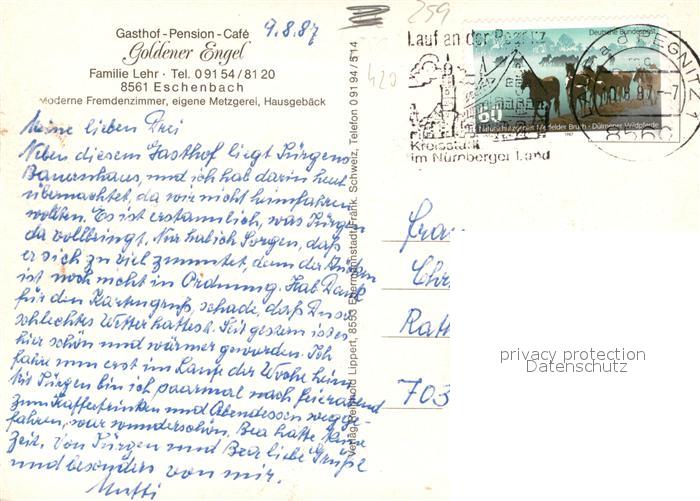 9.8.87
259
420
Gasthof - Pension - Café
Goldener Engel
Familie Lehr · Tel. 0 91 54 / 81 20
8561 Eschenbach
Moderne Fremdenzimmer, eigene Metzgerei, Hausgebäck
Meine lieben Drei
Neben diesem Gasthof liegt Jürgens
Bauernhaus, und ich hab darin heut
übernachtet, da wir nicht heimfahren
wollten. Es ist erstaunlich, was Jürgen
da vollbringt. Nur hab ich Sorgen, daß
er sich zu viel zumutet, denn der Rücken
ist noch nicht in Ordnung. Hab Dank
für den Kartengruß, schade, daß Du so
schlechtes Wetter hattest. Seit gestern ist es
hier schön und wärmer geworden. Ich
fahre nun erst im Laufe der Woche heim
Mit Jürgen bin ich paarmal nach Feierabend
zum Kaffeetrinken und Abendessen wegge-
fahren, war wunderschön. Bea hatte keine
Zeit. Von Jürgen und Bea liebe Grüße
und besonders von mir.
Mutti
Verlag Reinhold Lippert, 8553 Ebermannstadt/Fränk. Schweiz, Telefon 0 91 94/5 14
Lauf an der Pegnitz
Kreisstadt
im Nürnberger Land
a d PEGNITZ 1
8560
Deutsche Bundespost
60
Naturschutzgebiet Merfelder Bruch · Dülmener Wildpferde
1987
Frau
Chr
Ratt
703
privacy protection
Datenschutz